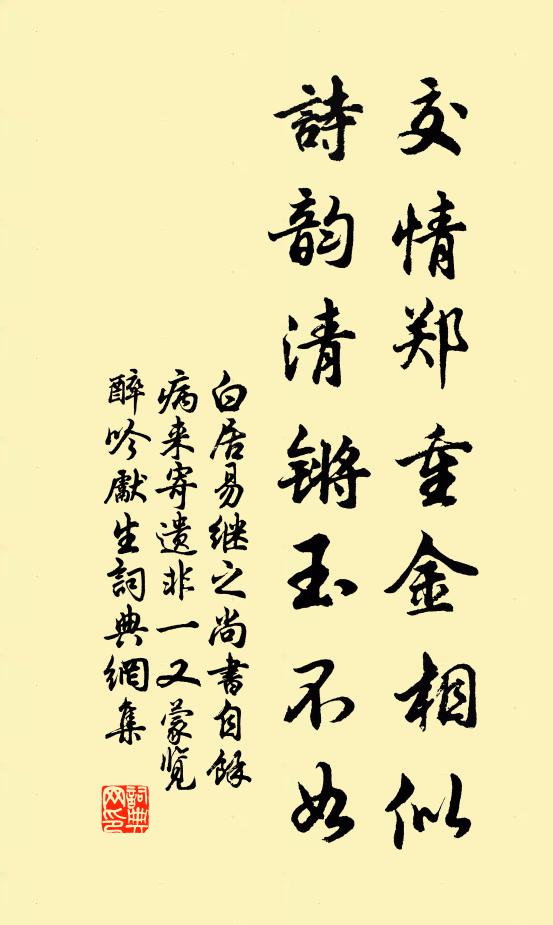 交情郑重金相似
詩韵清锵玉不如
白居易继之尚書自馀
病来寄遗非一又蒙览
醉吟獻生詞典網集
詞典网印